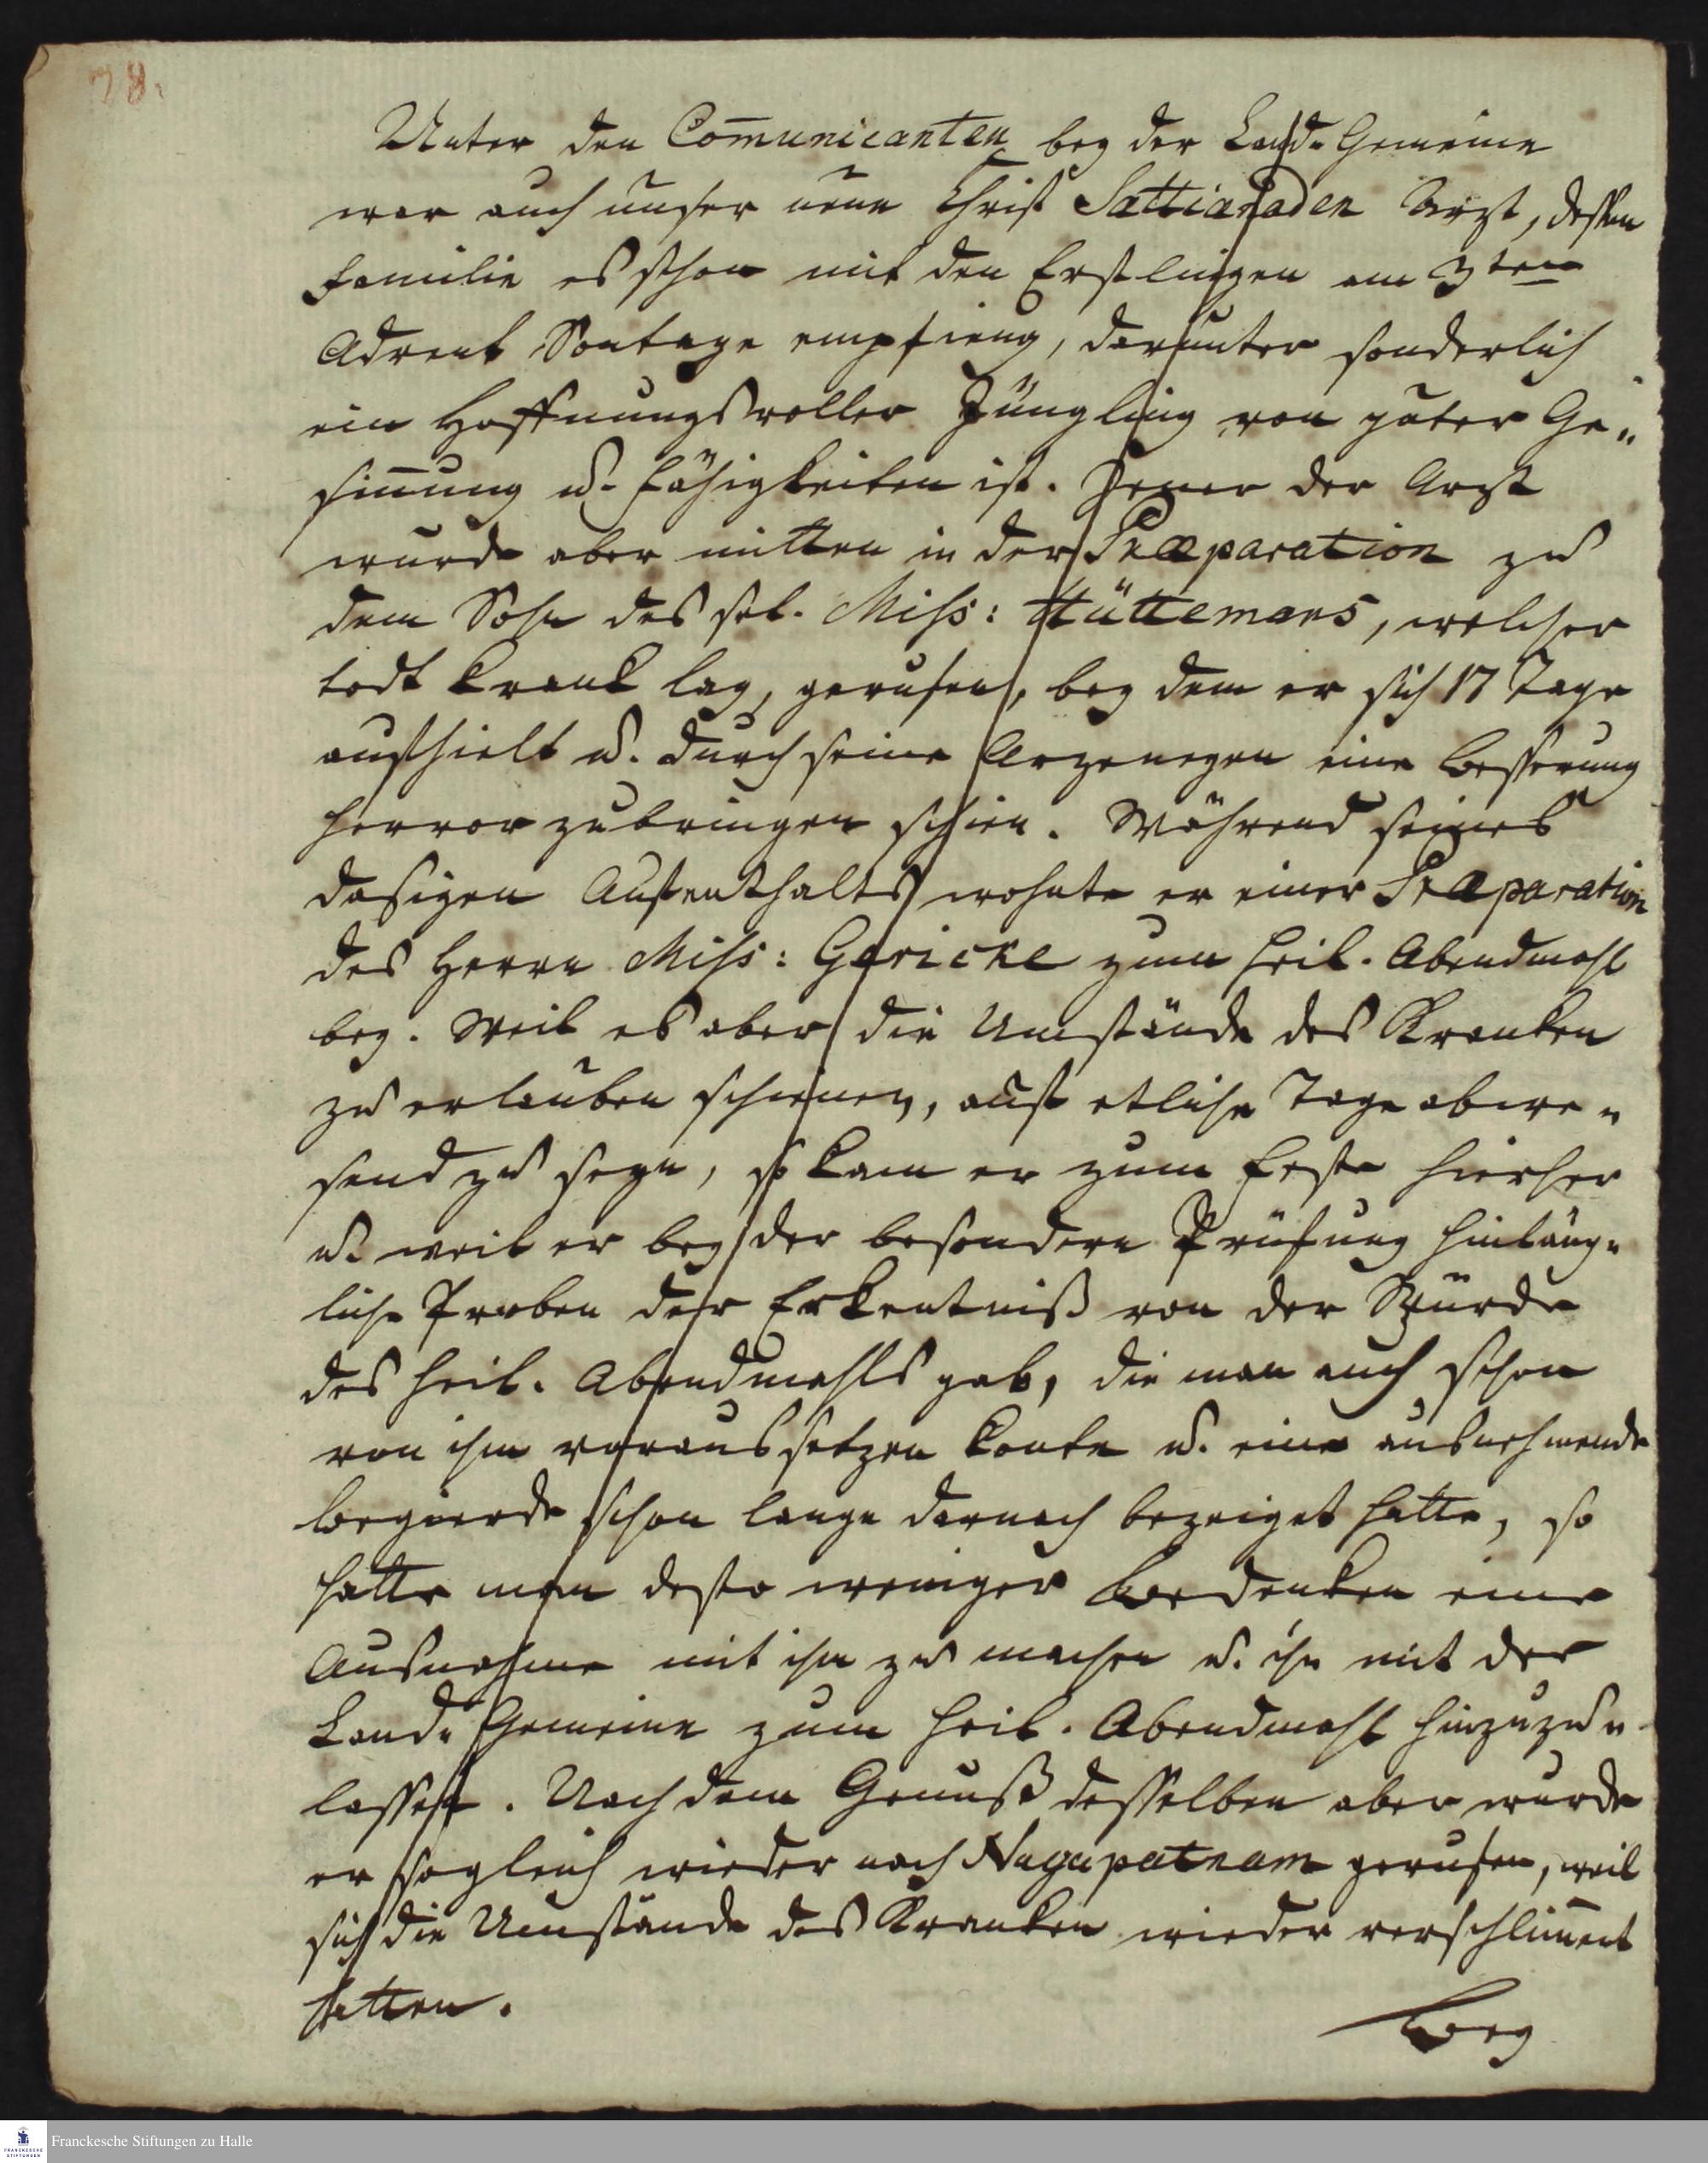 78.
Unter den Com̄unicanten bey der Land-Gemeine
war auch unser neue Christ Sattianaden Arzt, dessen
Familie es schon mit den Erstlingen am 3ten
Advent Sontage empfieng, darunter sonderlich
ein Hoffnungsvoller Jüngling von guter Ge„
sin̄ung u. Fähigkeiten ist. Jener der Arzt
wurde aber mitten in der Præparation zu
dem Sohn des sel. Miss: Hüttemans, welcher
todt krank lag, gerufen, bey dem er sich 17 Tage
aufhielt u. durch seine Arzeneyen eine Besserung
hervor zu bringen schien. Während seines
dasigen Aufenthalts wohnte er einer Præparation
des Herrn Miss: Gericke zum heil. Abendmahl
bey. Weil es aber die Umstände des Kranken
zu erlauben schienen, auf etliche Tage abwe„
send zu seyn, so kam er zum Feste hierher
u. weil er bey der besondern Prüfung hinläng„
liche Proben der Erkentniß von der Würde
des heil. Abendmahls gab, die man auch schon
von ihm voraus setzen konte u. eine ausnehmende
Begierde schon lange darnach bezeiget hatte, so
hatte man desto weniger Bedenken eine
Ausnahme mit ihm zu machen u. ihn mit der
Land-Gemeine zum heil. Abendmahl hinzuzu„
lassen. Nach dem Genuß desselben aber wurde
er sogleich wieder nach Nagapatnam gerufen, weil
sich die Umstände des Kranken wieder verschlim̄ert
hatten.
Bey
FRANCKESCHE STIFTUNGEN
Franckesche Stiftungen zu Halle